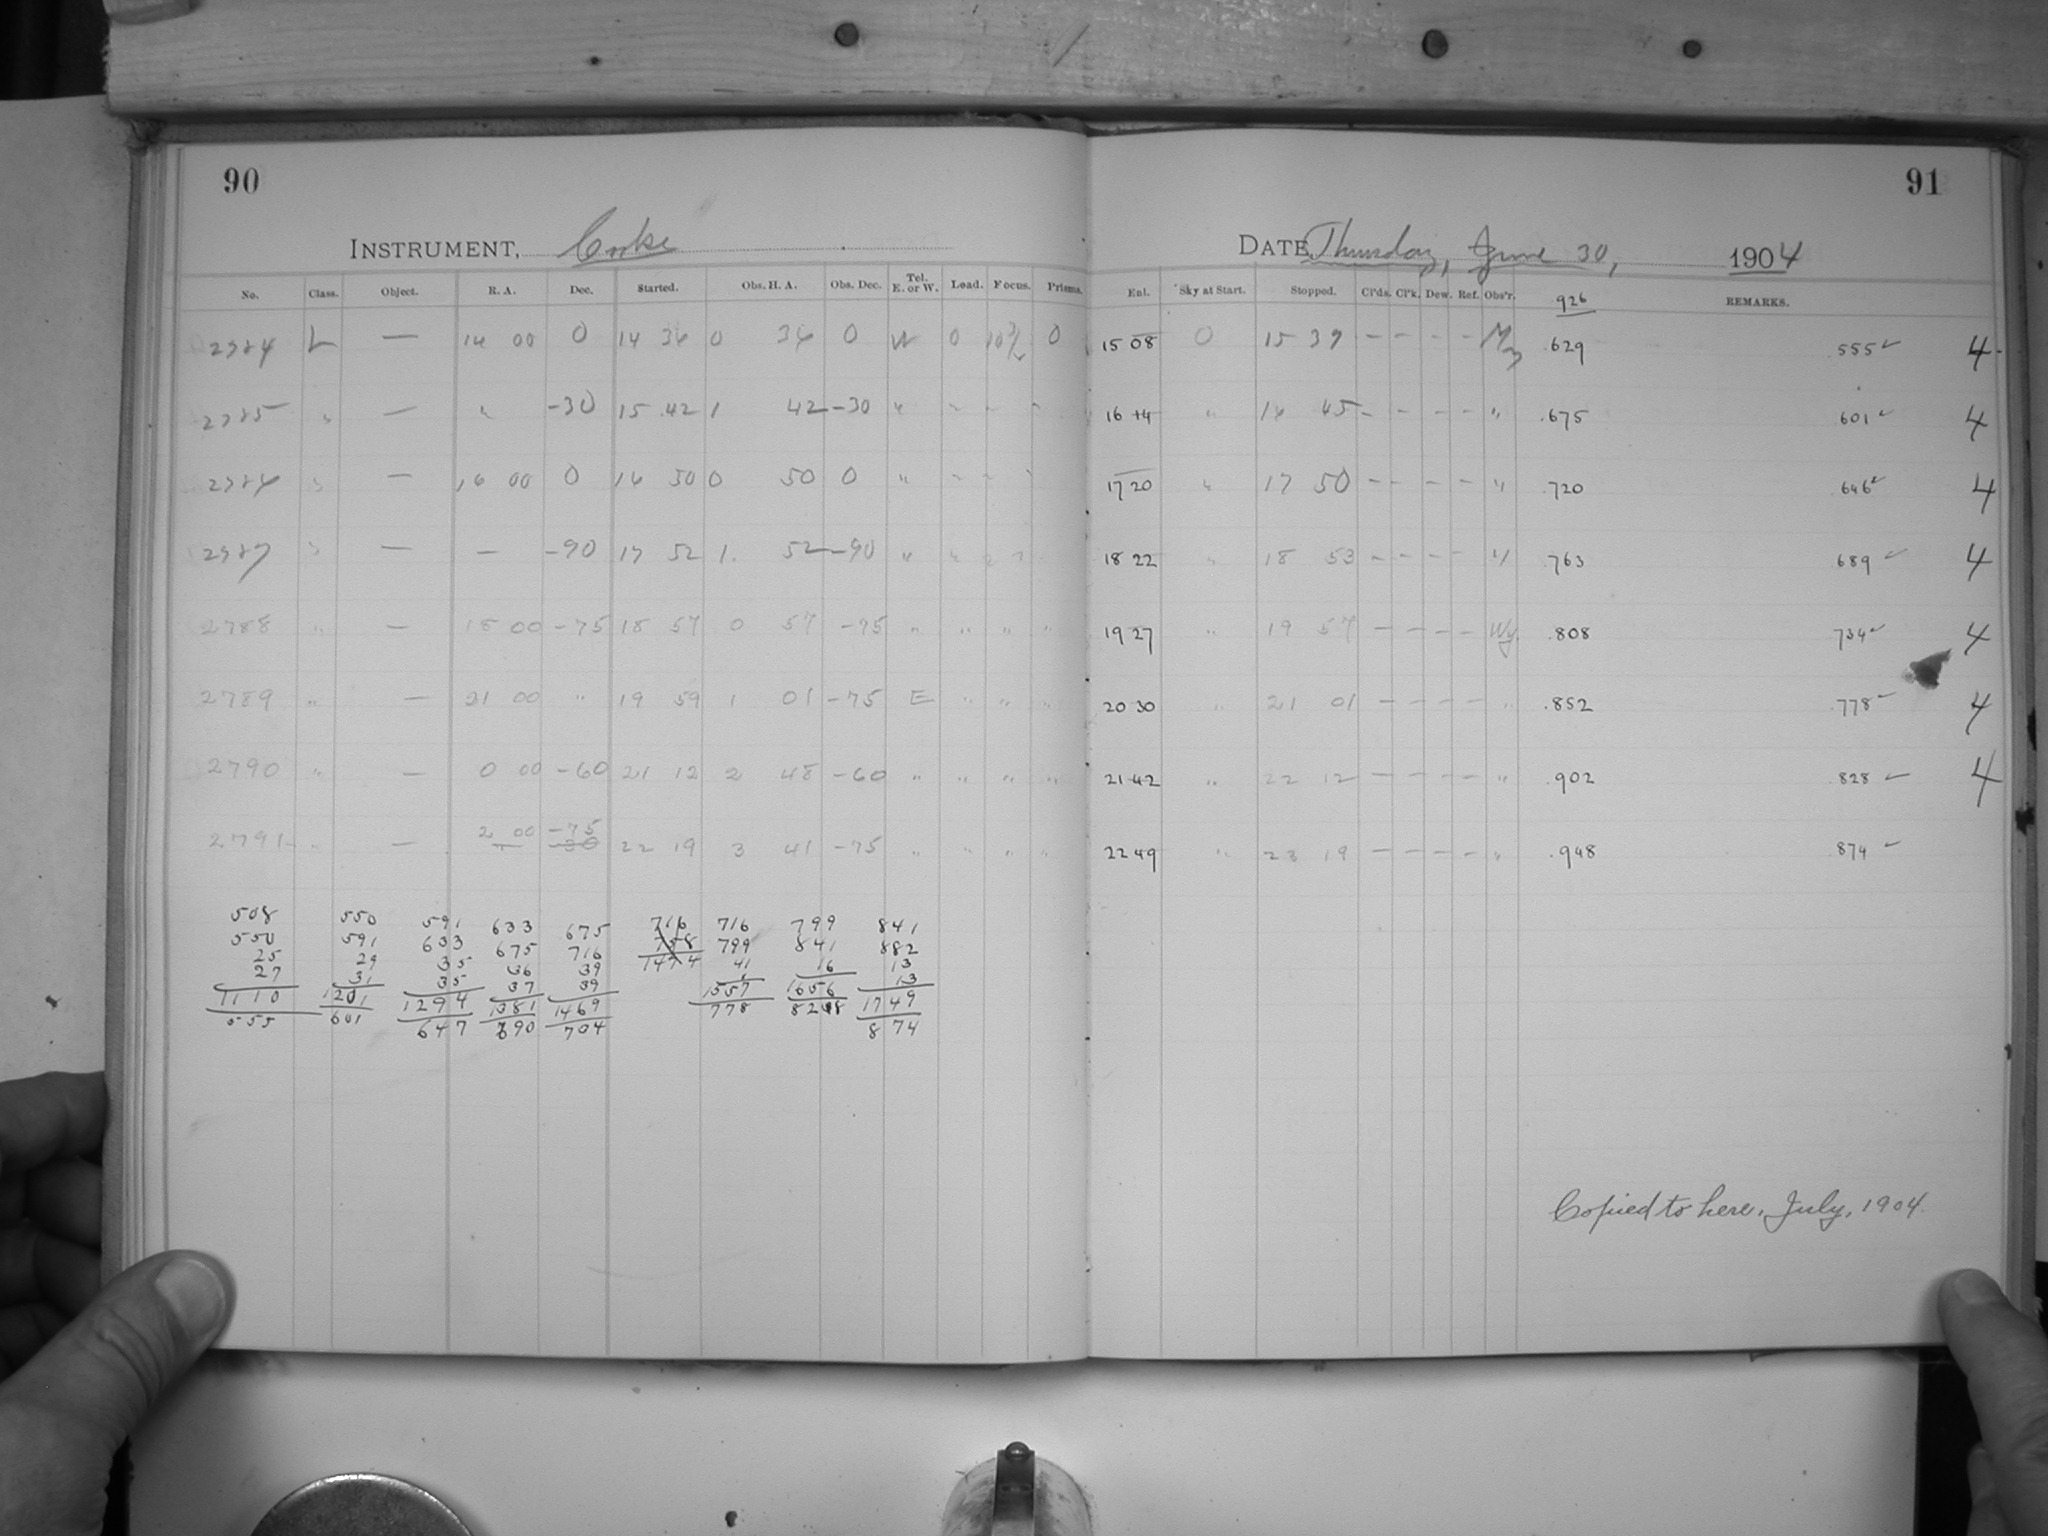 90
INSTRUMENT, Cooke
No. Class. Object. R. A. Dec. Started. Obs. H. A. Obs. Dec. Tel. E. or W. Load. Focus. Prisms.
2784 L — 14 00 0 14 36 0 36 0 W 0 10 3/2 0
2785 " — " -30 15 42 1 42 -30 "
2786 " — 16 00 0 16 50 0 50 0 "
2787 " — — -90 17 52 1 52 -90 "
2788 " — 18 00 -75 18 57 0 57 -75 " " " "
2789 " — 21 00 " 19 59 1 01 -75 E " " "
2790 " — 0 00 -60 21 12 2 48 -60 " " " "
2791 " — 2 00 -75 22 19 3 41 -75 " " " "
-30
508 550 591 633 675 716 716 799 841
550 591 633 675 716 758 799 841 882
25 29 35 36 39 1474 41 16 13
27 31 35 37 39 1 13
1110 1201 1294 1381 1469 1557 1656 1749
555 601 647 690 704 778 828 874
91
DATE Thursday, June 30, 1904
Ent. Sky at Start. Stopped. Cl'ds. Cl'k. Dew. Ref. Obs'r. 926 REMARKS.
15 08 0 15 39 — — — — .629 .555 ✓ 4
16 14 " 16 45 — — — — " .675 .601 ✓ 4
17 20 " 17 50 — — — — " .720 .646 ✓ 4
18 22 " 18 53 — — — — " .763 .689 ✓ 4
19 27 " 19 57 — — — — Wy. .808 .734 ✓ 4
20 30 " 21 01 — — — — " .852 .778 ✓ 4
21 42 " 22 12 — — — — " .902 .828 ✓ 4
22 49 " 23 19 — — — — " .948 .874 ✓
Copied to here, July, 1904.